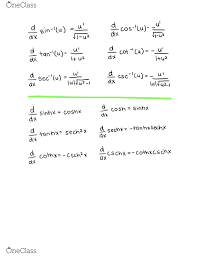 OneClass
d/dx sin⁻¹(u) = u'/√1-u² d/dx cos⁻¹(u) = -u'/√1-u²
d/dx tan⁻¹(u) = u'/1+u² d/dx cot⁻¹(u) = -u'/1+u²
d/dx sec⁻¹(u) = u'/|u|√u²-1 d/dx csc⁻¹(u) = -u'/|u|√u²-1
d/dx sinhx = coshx d/dx coshx = sinhx
d/dx tanhx = sech²x d/dx sechx = -tanhxsechx
d/dx cothx = -csch²x d/dx cschx = -cothxcschx
OneClass